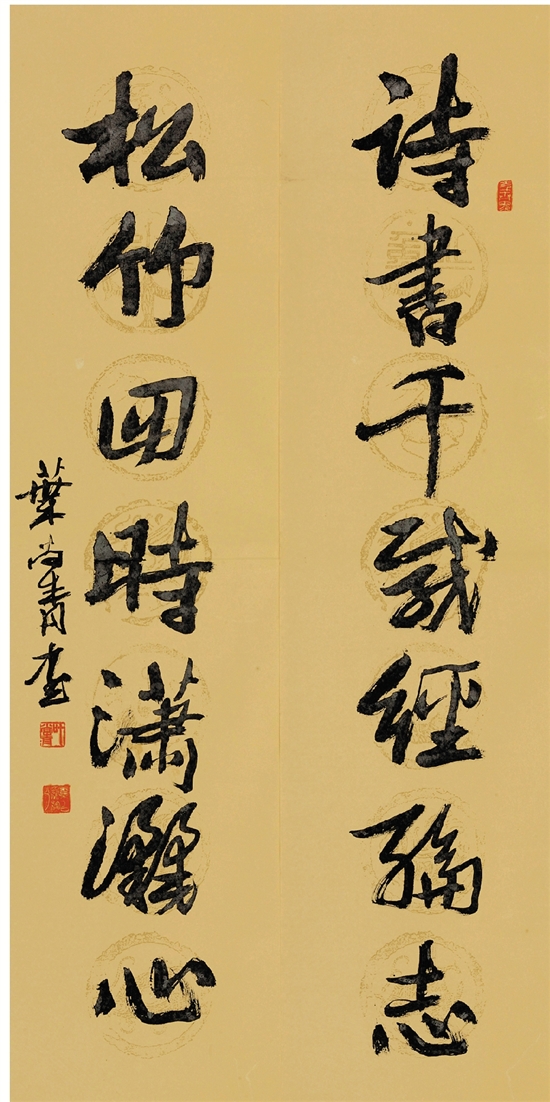 詩書千載經綸志
松竹四時瀟灑心
葉尚青書